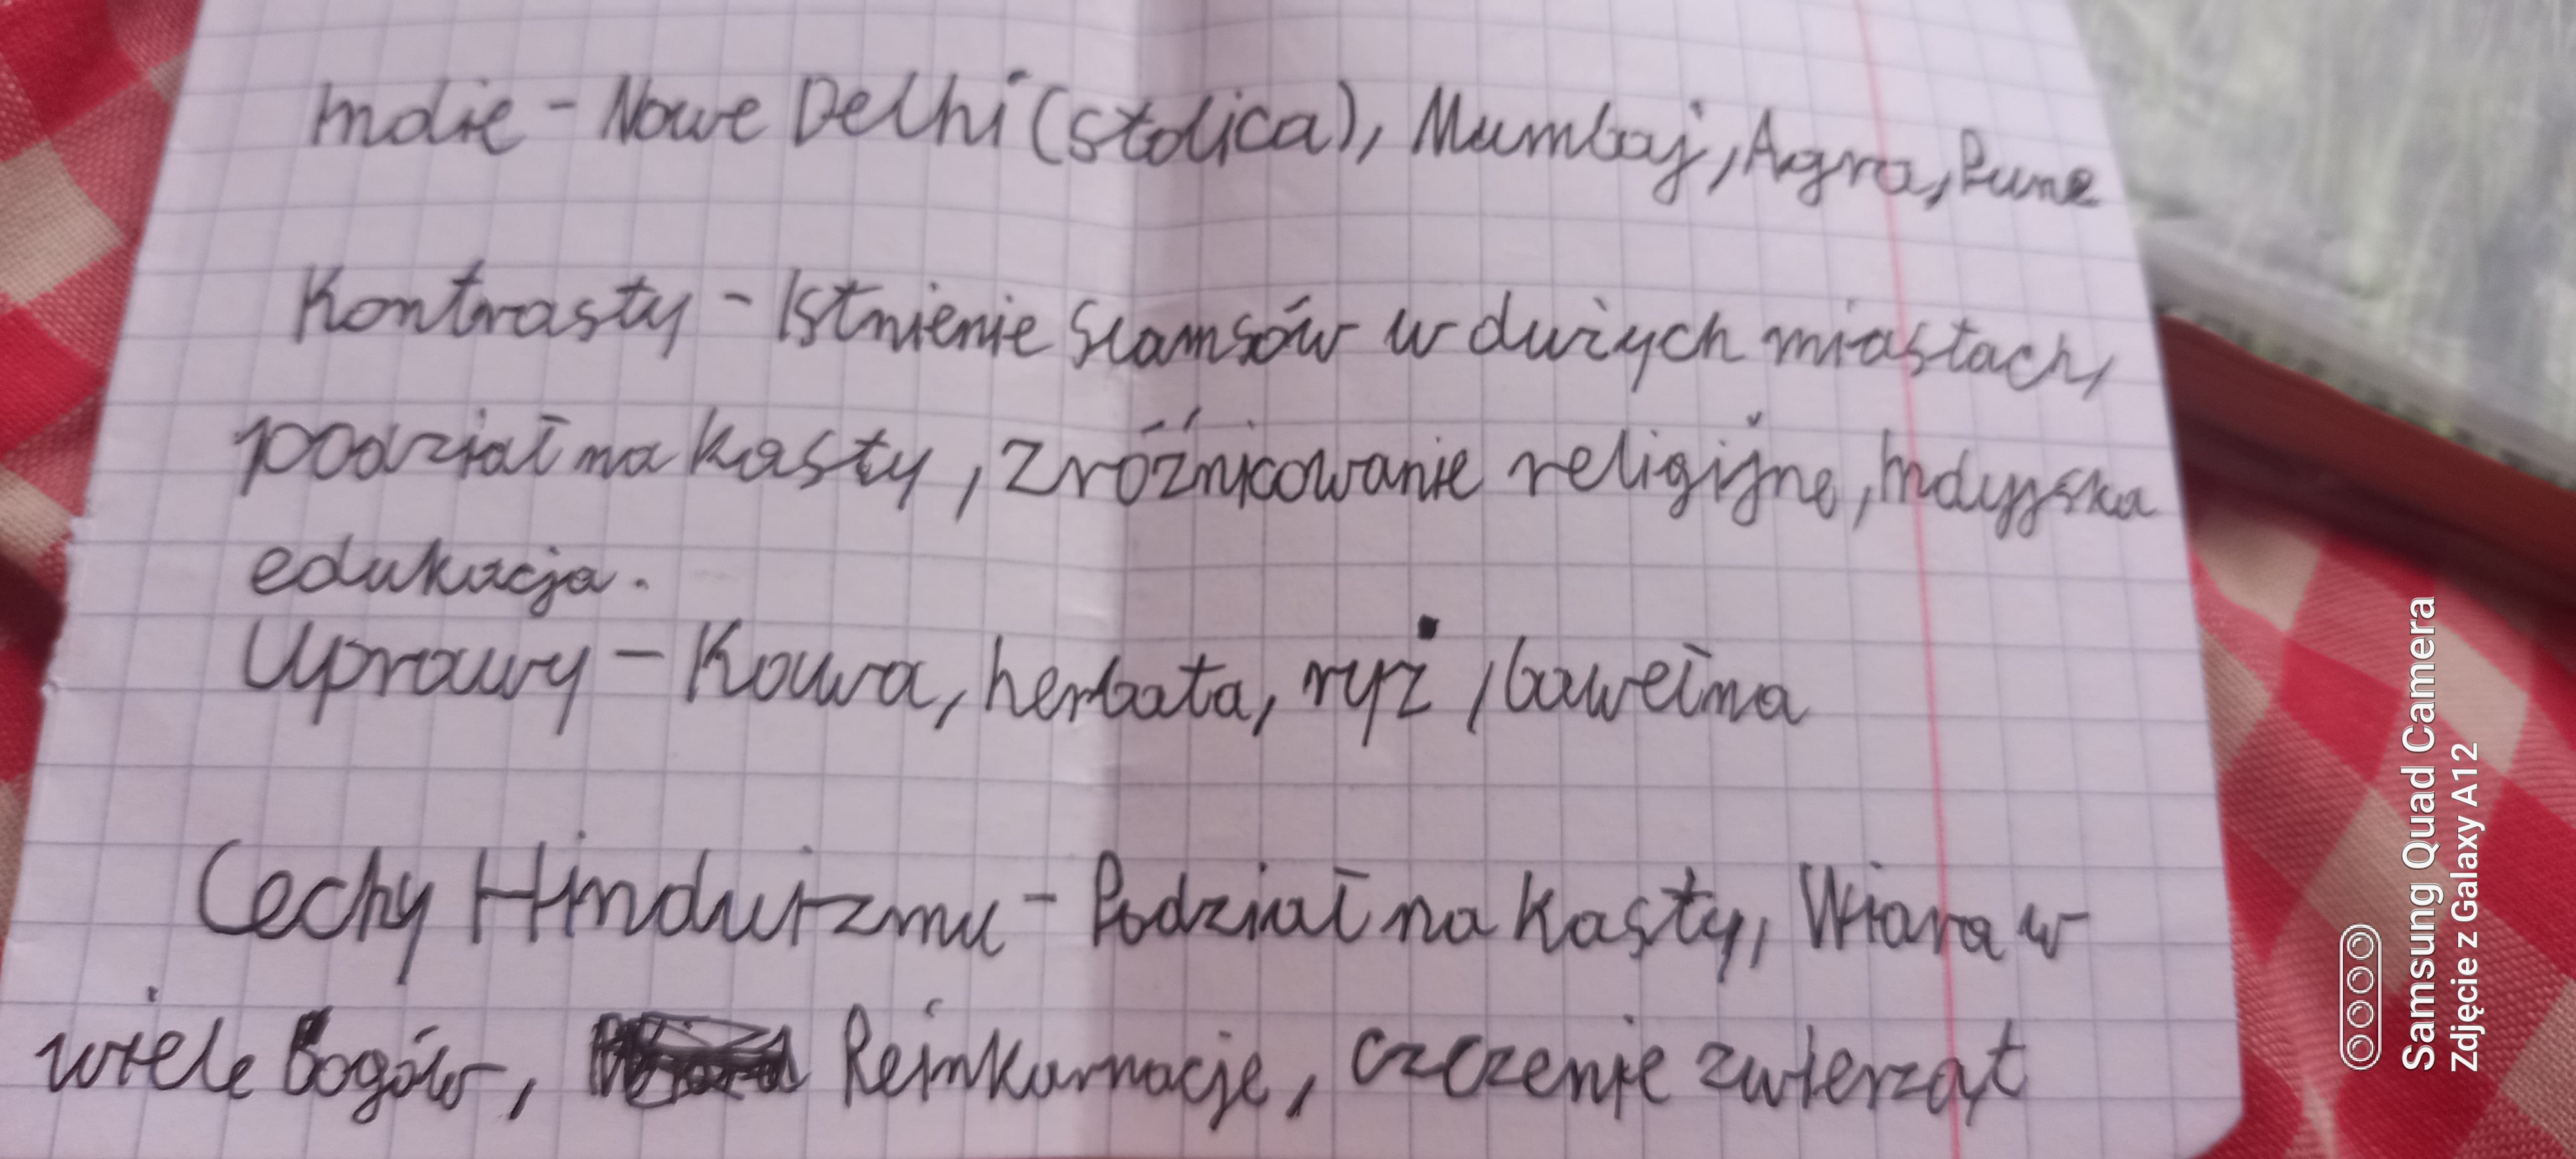 Indie - Nowe Delhi (stolica), Mumbaj, Agra, Pune
Kontrasty - Istnienie slamsów w dużych miastach,
podział na kasty, zróżnicowanie religijne, Indyjska
edukacja.
Uprawy - Kawa, herbata, ryż, bawełna
Cechy Hinduizmu - Podział na kasty, Wiara w
wiele Bogów, Reinkarnacje, czczenie zwierząt
Samsung Quad Camera
Zdjęcie z Galaxy A12